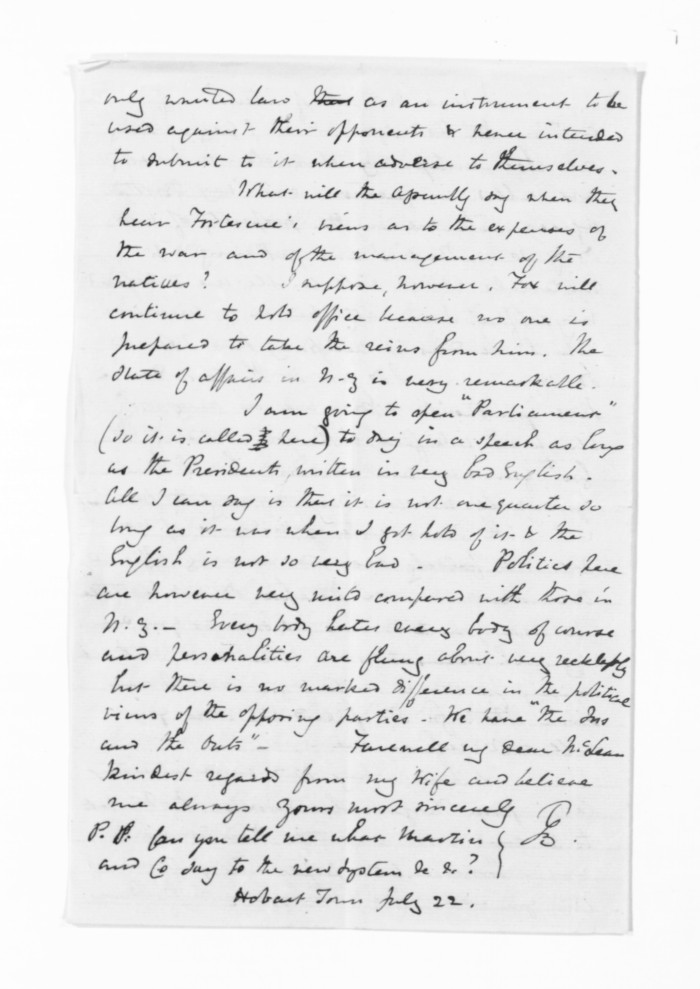 only wanted law that as an instrument to be
used against their opponents & hence intended
to submit to it when adverse to themselves.
What will the Assembly say when they
hear Fortescue's views as to the expenses of
the war and of the management of the
natives? I suppose, however, Fox will
continue to hold office because no one is
prepared to take the reins from him. The
state of affairs in N-Z is very remarkable.
I am going to open "Parliament"
(so it is called here) to day in a speech as long
as the Presidents, written in very bad English.
All I can say is that it is not one quarter so
long as it was when I got hold of it & the
English is not so very bad - Politics here
are however very mild compared with those in
N.Z. - Every body hates every body of course
and personalities are flung about very recklessly
but there is no marked difference in the political
views of the opposing parties - We have "the Ins
and the Outs" - Farewell my dear McLean
kindest regards from my Wife and believe
me always yours most sincerely
P.S. Can you tell me what Martin
and Co say to the new system &c &c?
Hobart Town July 22.